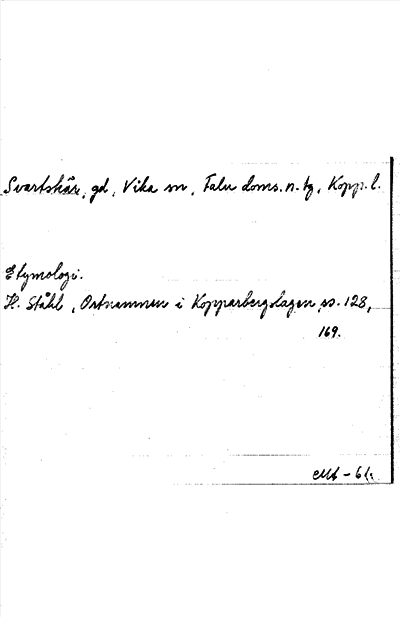 Svartskär, gd, Vika sn, Falu doms. n. tg, Kopp. l.
Etymologi.
H. Ståhl, Ortnamnen i Kopparbergslagen ss. 128,
169.